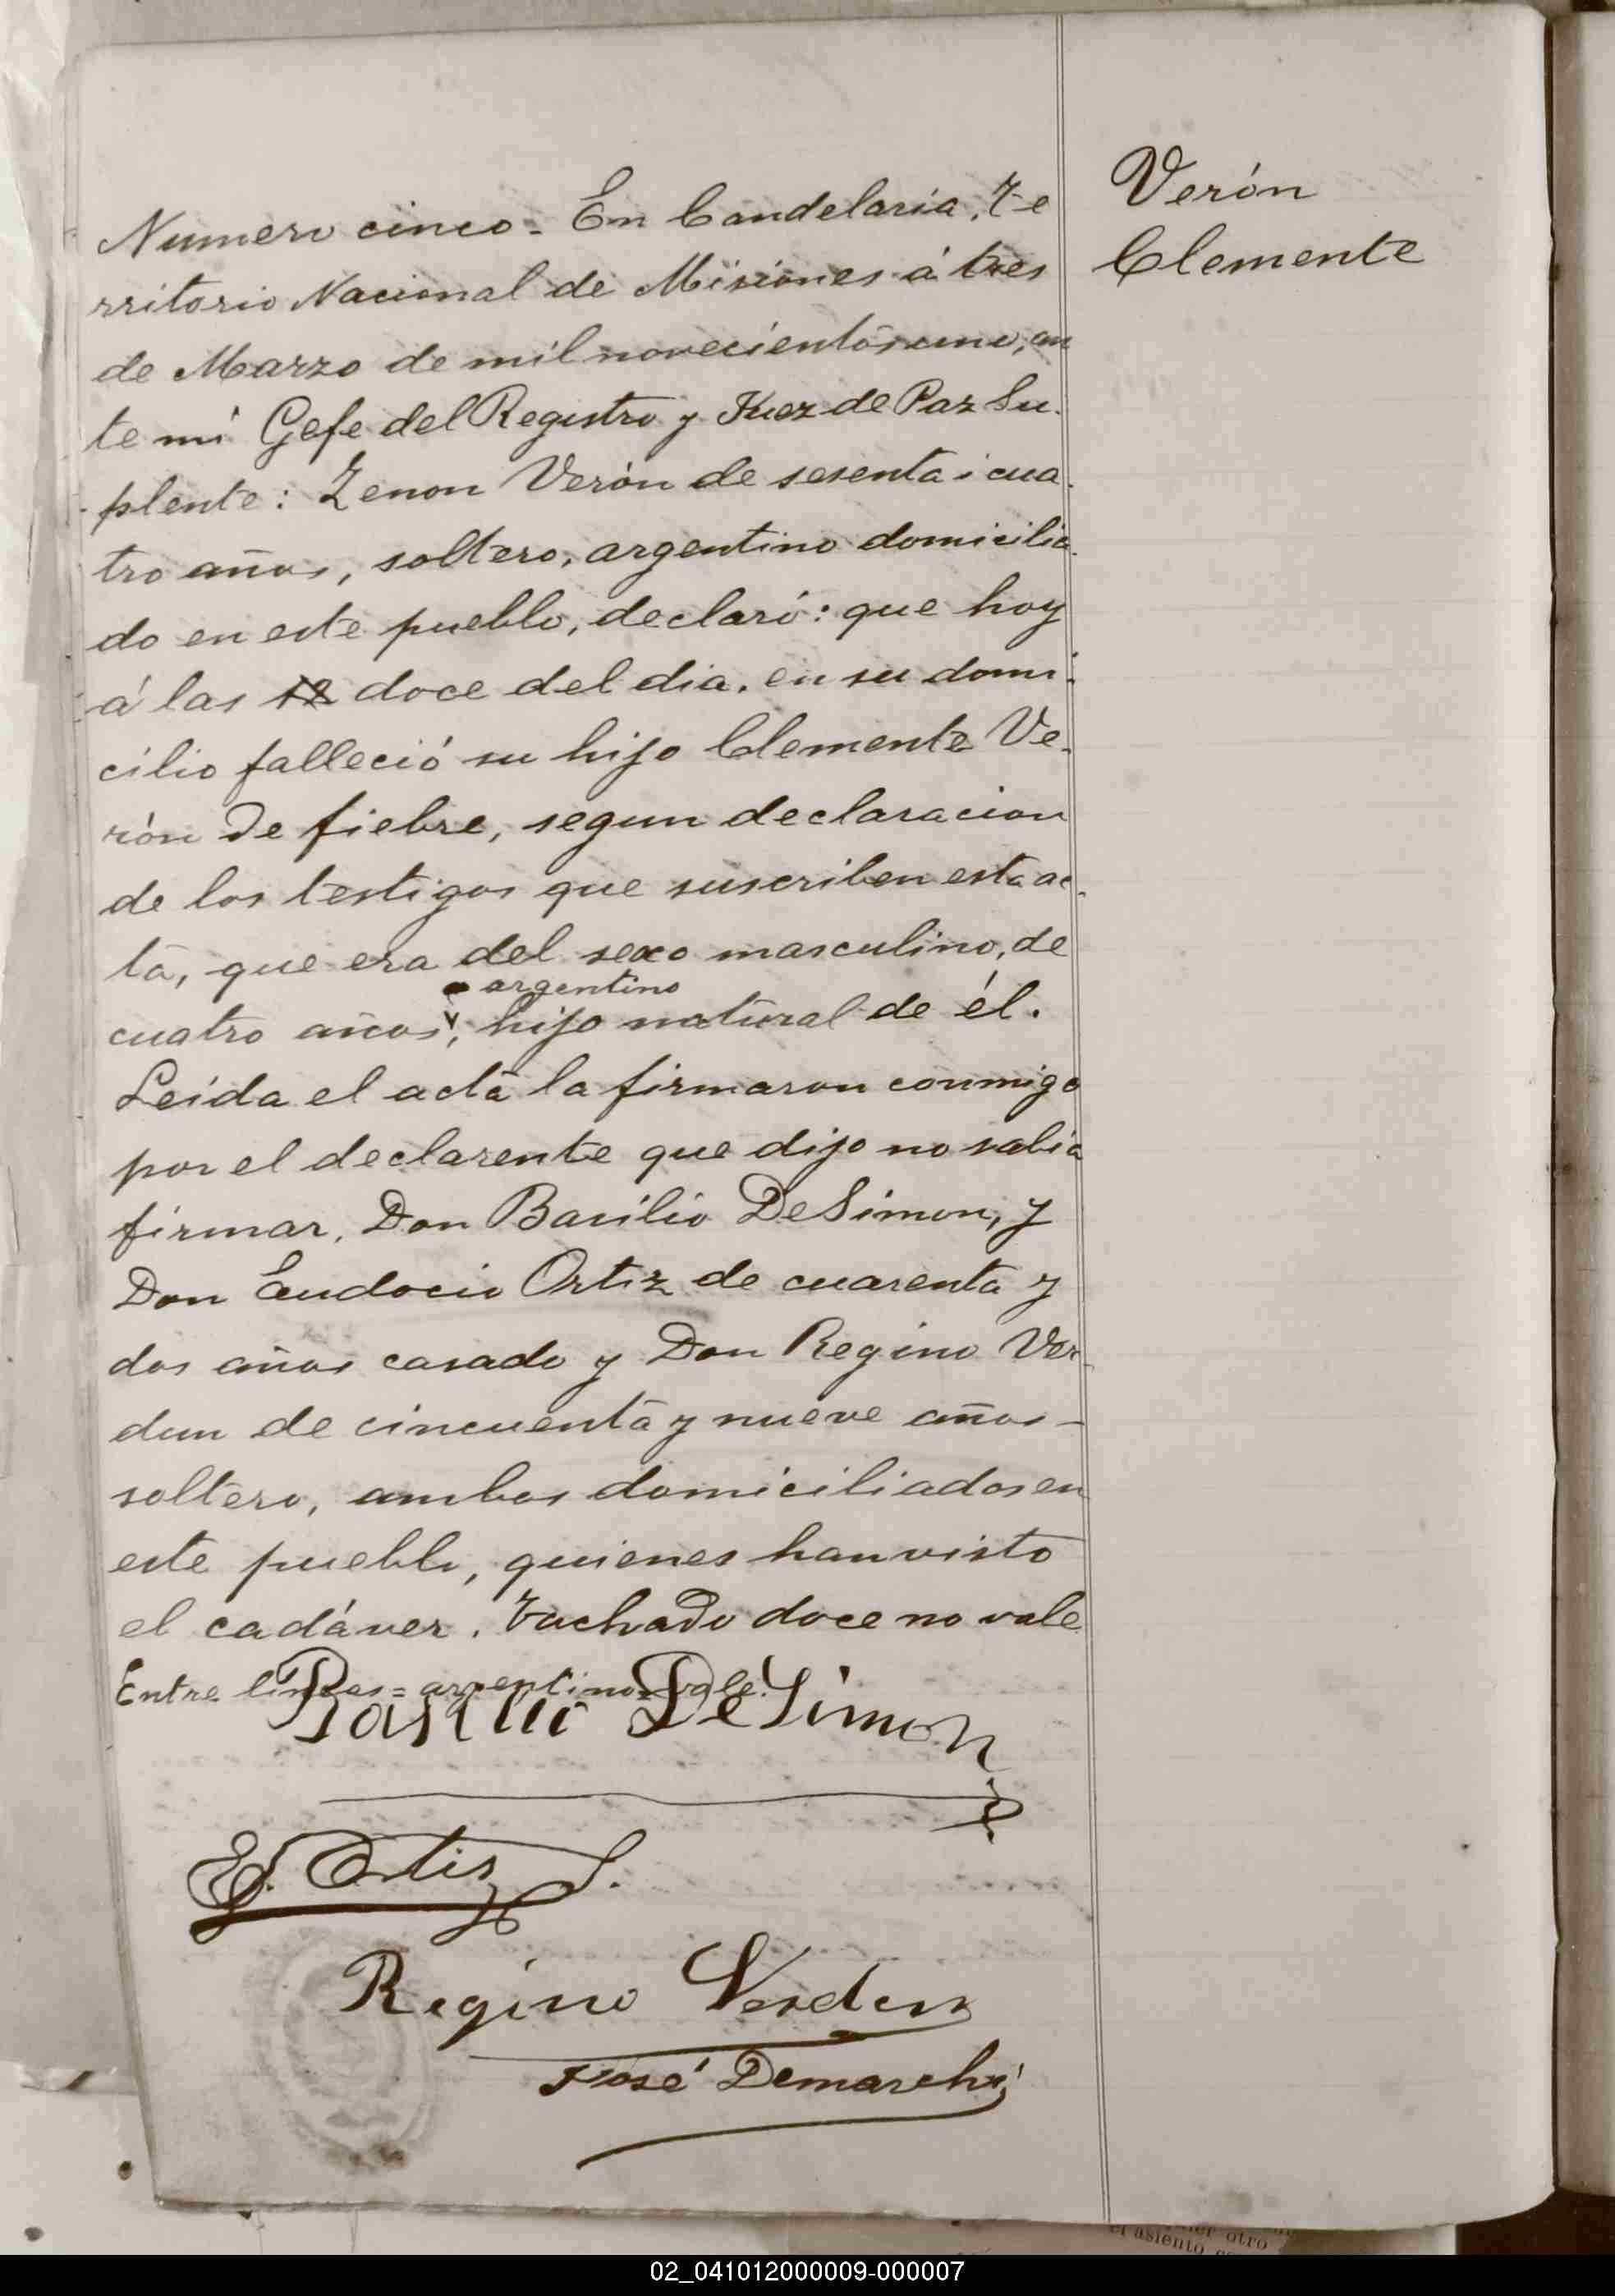 Verón
Clemente
Numero cinco = En Candelaria, Te
rritorio Nacional de Misiones á tres
de Marzo de mil novecientos uno, an
te mí Gefe del Registro y Juez de Paz Su-
plente: Zenon Verón de sesenta i cua-
tro años, soltero, argentino domicilia-
do en este pueblo, declaró: que hoy
á las 12 doce del dia, en su domi-
cilio falleció su hijo Clemente Ve-
rón de fiebre, segun declaracion
de los testigos que suscriben esta ac-
ta, que era del sexo masculino, de
argentino
cuatro años, hijo natural de él.
Leida el acta la firmaron conmigo
por el declarente que dijo no sabia
firmar, Don Basilio DeSimon, y
Don Eudocio Ortiz de cuarenta y
dos años casado y Don Regino Ver-
dun de cincuenta y nueve años -
soltero, ambos domiciliados en
este pueblo, quienes han visto
el cadáver. Tachado doce no vale
Entre lineas = argentino = vale.
Basilio DeSimon
Ed. Ortiz S.
Regino Verdun
José Demarchi
otro
el asiento
02_041012000009-000007